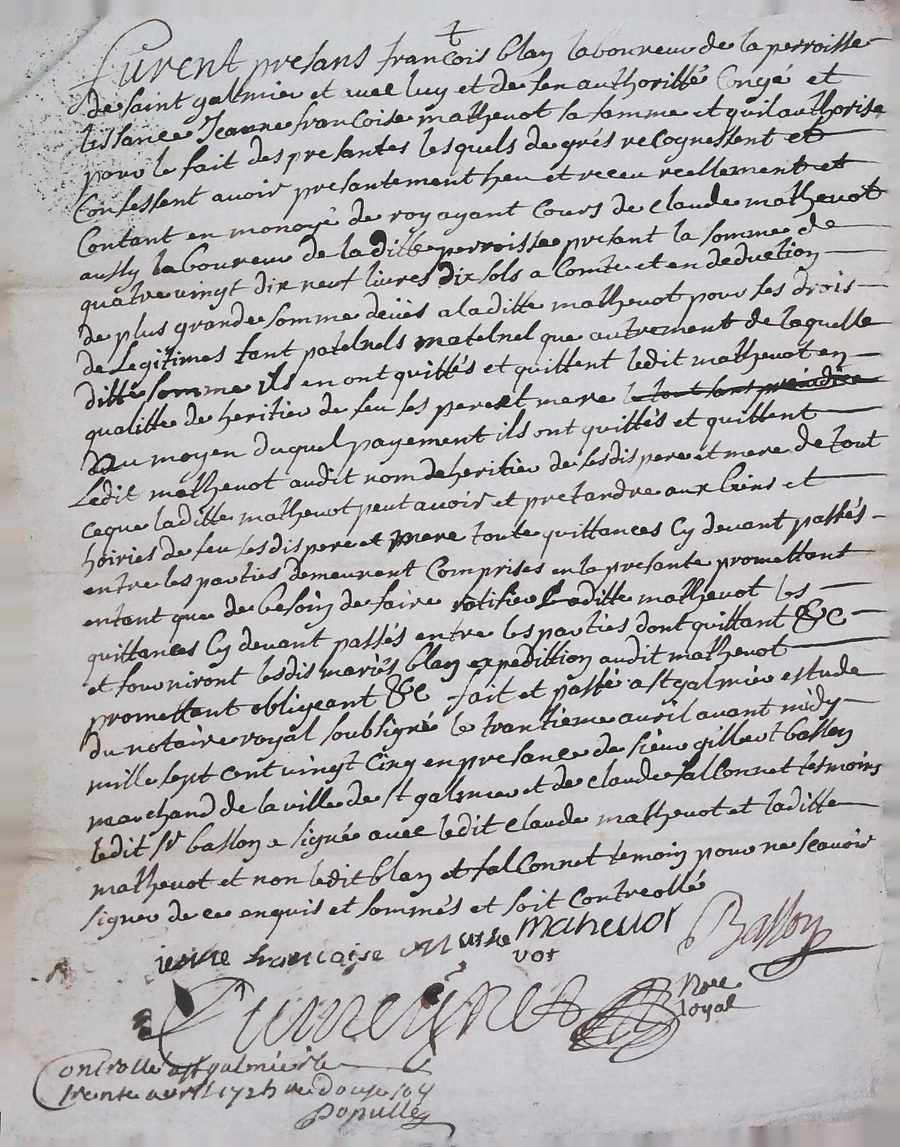 furent presans francois blan laboureur de la perroisse
de saint galmier et avec luy et de son authoritté Congé et
lissance Jeanne francoise mathevot sa famme et quil authorise
pour le fait des presantes lesquels de grés recognessent et
Confessent avoir presantement heu et receu reellement et
Contant en monoye de roy ayant Cours de claude mathevot
aussy laboureur de laditte perroisse presant la somme de
quatre vingt dix neuf livres dix sols a Comte et en deduction
de plus grande somme deües a laditte mathevot pour ses drois
de Legitimes tant patelnels matelnel que autrement de laquelle
ditte somme ils en ont quittés et quittent ledit mathevot en
qualitte de heritier de feu ses pere et mere le tout sans prejudice
Du moyen duquel payement ils ont quittés et quittent
Ledit mathevot audit nom de heritier de sesdis pere et mere de tout
ceque laditte mathevot peut avoir et pretandre aux biens et
hoiries de feu sesdis pere et mere toute quittances Cy devant passés
entre les parties demeurent Comprises en la presante promettant
entant que de besoin de faire ratifier laditte mathevot les
quittances Cy devant passés entre les parties dont quittant &c
et fourniront lesdis mariés blan expedittion audit mathevot
promettant obligeant &c fait et passé a st galmier estude
du notaire royal soubsigné le trantieme avril avant midy
mille sept cent vingt Cinq en presance de sieur gilbert basson
marchand de la ville de st galmier et de claude falconnet tesmoins
ledit sr basson a signée avec ledit claude mathevot et laditte
mathevot et non ledit blan et falconnet temoin pour ne scavoir
signer de ce enquis et sommés et soit Controllé
francoise mahevot Basson
vot
Nore
royal
Controllé a st galmier le
trente avril 1725 re douze sols
Populle